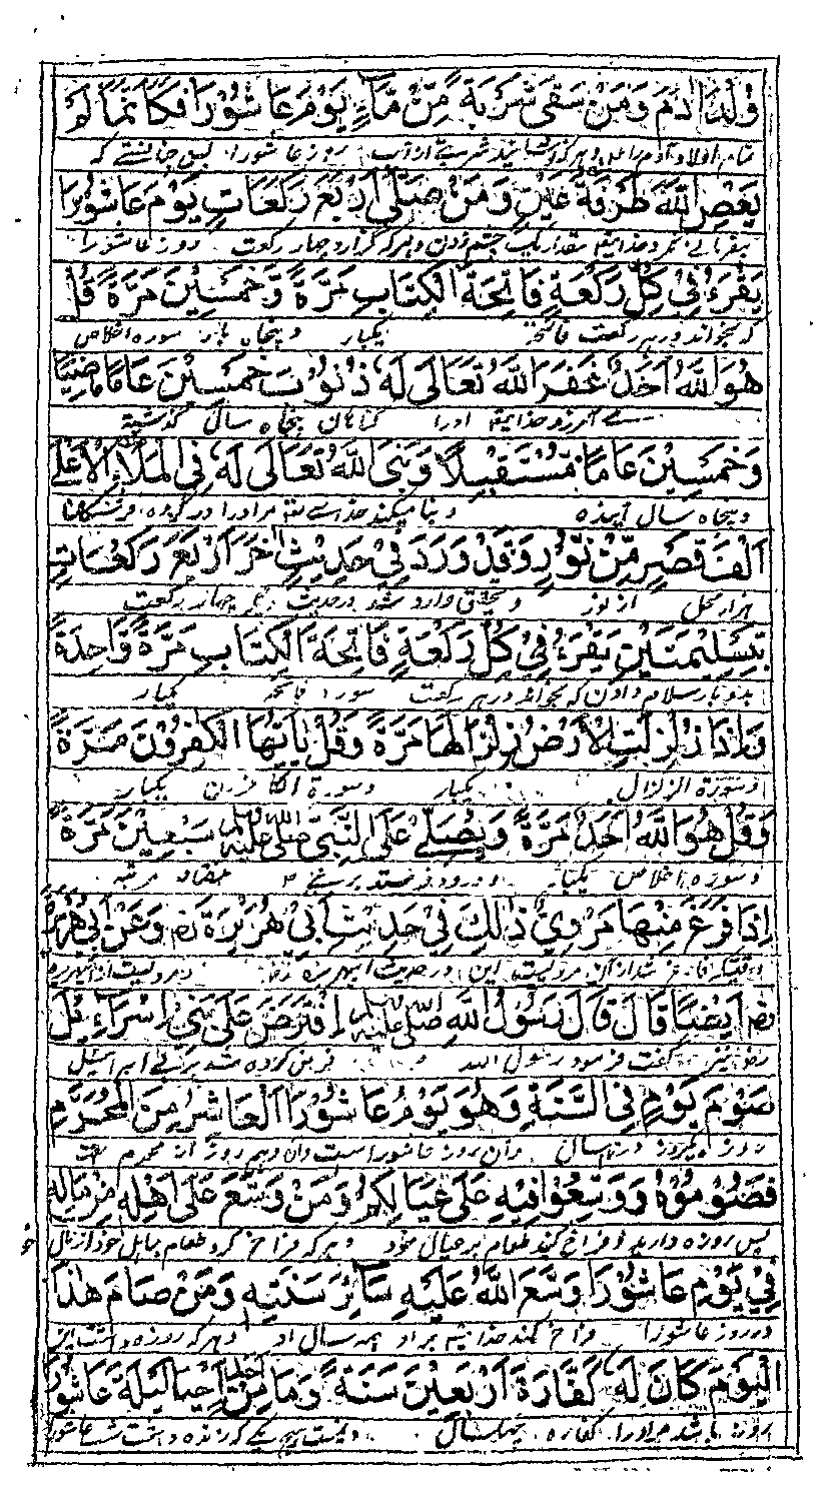 وُلْدَ اٰدَمَ وَمَنْ سَقٰى شَرْبَةً مِّنْ مَّآءٍ يَوْمَ عَاشُوْرَا فَكَاَنَّمَا لَمْ
تمام اولاد آدم را روز عاشورا
يَعْصِ اللّٰهَ طَرْفَةَ عَيْنٍ وَمَنْ صَلّٰى اَرْبَعَ رَكَعَاتٍ يَوْمَ عَاشُوْرَا
چشم زدن و هر که گزارد چهار رکعت روز عاشورا
يَقْرَءُ فِىْ كُلِّ رَكْعَةٍ فَاتِحَةَ الْكِتَابِ مَرَّةً وَّخَمْسِيْنَ مَرَّةً قُلْ
که بخواند در هر رکعت فاتحه یکبار و پنجاه بار سوره اخلاص
هُوَ اللّٰهُ اَحَدٌ غَفَرَ اللّٰهُ تَعَالٰى لَهٗ ذُنُوْبَ خَمْسِيْنَ عَامًا مَاضِيًا
اورا گناهان پنجاه سال گذشته
وَخَمْسِيْنَ عَامًا مُّسْتَقْبِلًا وَبَنَى اللّٰهُ تَعَالٰى لَهٗ فِى الْمَلَاءِ الْاَعْلٰى
و پنجاه سال آینده و بنا میکند مر اورا در گروه فرشتگان
اَلْفَ قَصْرٍ مِّنْ نُّوْرٍ وَقَدْ وَرَدَ فِىْ حَدِيْثٍ اٰخَرَ اَرْبَعَ رَكَعَاتٍ
هزار محل از نور و تحقیق وارد شد در حدیث چهار رکعت
بِتَسْلِيْمَتَيْنِ يَقْرَءُ فِىْ كُلِّ رَكْعَةٍ فَاتِحَةَ الْكِتَابِ مَرَّةً وَّاحِدَةً
بدو بار سلام دادن که بخواند در هر رکعت سوره فاتحه یکبار
وَاِذَا زُلْزِلَتِ الْاَرْضُ زِلْزَالَهَا مَرَّةً وَقُلْ يٰاَيُّهَا الْكٰفِرُوْنَ مَرَّةً
و سورة الزلزال یکبار و سورة الکافرون یکبار
وَقُلْ هُوَ اللّٰهُ اَحَدٌ مَرَّةً وَيُصَلِّىْ عَلَى النَّبِىِّ صلى الله عليه وسلم سَبْعِيْنَ مَرَّةً
و سوره اخلاص یکبار و درود فرستد بر نبی هفتاد مرتبه
اِذَا فَرَغَ مِنْهَا مَرْوِىٌّ ذٰلِكَ فِىْ حَدِيْثِ اَبِىْ هُرَيْرَةَ رض وَعَنْ اَبِىْ هُرَيْرَةَ
این در حدیث ابی هریره
رض اَيْضًا قَالَ قَالَ رَسُوْلُ اللّٰهِ صلى الله عليه وسلم اِفْتَرَضَ عَلٰى بَنِىْ اِسْرَاءِيْلَ
گفت فرمود رسول الله فرض کرده شد بر بنی اسرائیل
صَوْمَ يَوْمٍ فِى السَّنَةِ وَهُوَ يَوْمُ عَاشُوْرَا الْعَاشِرُ مِنَ الْمُحَرَّمِ
روزه یکروز در سال و آن روز عاشورا است و آن دهم روز از محرم
فَصُوْمُوْهُ وَوَسِّعُوْا فِيْهِ عَلٰى عِيَالِكُمْ وَمَنْ وَسَّعَ عَلٰى اَهْلِهٖ مِنْ مَالِهٖ
پس روزه دارید و فراخ کنید طعام بر عیال خود و هر که فراخ کرد طعام باهل خود از مال
فِىْ يَوْمِ عَاشُوْرَا وَسَّعَ اللّٰهُ عَلَيْهِ سَآئِرَ سَنَتِهٖ وَمَنْ صَامَ هٰذَا
در روز عاشورا فراخ کند بر او همه سال او و هر که روزه داشت این
الْيَوْمَ كَانَ لَهٗ كَفَّارَةَ اَرْبَعِيْنَ سَنَةً وَمَا مِنْ اَحَدٍ اَحْيَا لَيْلَةَ عَاشُوْرَا
روز باشد مر اورا کفاره چهل سال